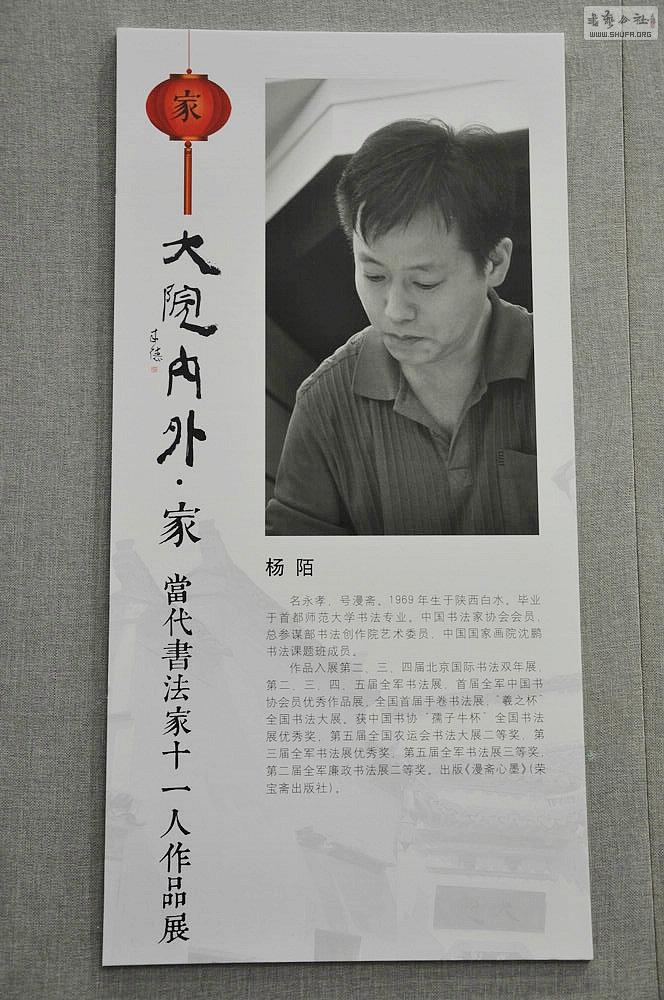 书艺公社
WWW.SHUFA.ORG
家
大院内外·家
當代書法家十一人作品展
杨 陌
名永孝，号漫斋。1969年生于陕西白水。毕业
于首都师范大学书法专业。中国书法家协会会员，
总参谋部书法创作院艺术委员，中国国家画院沈鹏
书法课题班成员。
作品入展第二、三、四届北京国际书法双年展，
第二、三、四、五届全军书法展，首届全军中国书
协会员优秀作品展，全国首届手卷书法展，“羲之杯”
全国书法大展。获中国书协“孺子牛杯”全国书法
展优秀奖，第五届全国农运会书法大展二等奖，第
三届全军书法展优秀奖，第五届全军书法展三等奖，
第二届全军廉政书法展二等奖。出版《漫斋心墨》(荣
宝斋出版社)。